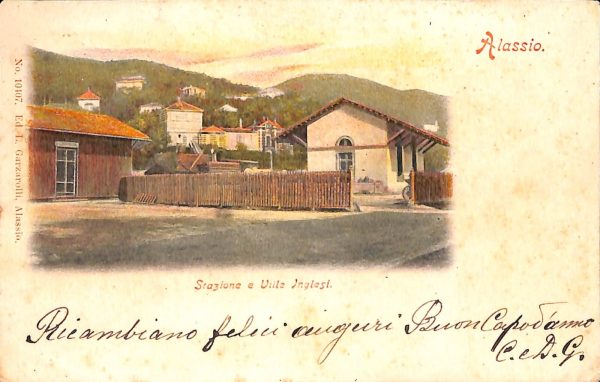 Alassio.
No. 10407. Ed. L. Garzarolli, Alassio.
Stazione e Ville Inglesi.
Ricambiano felici auguri Buon Capod'anno
C. e D. G.